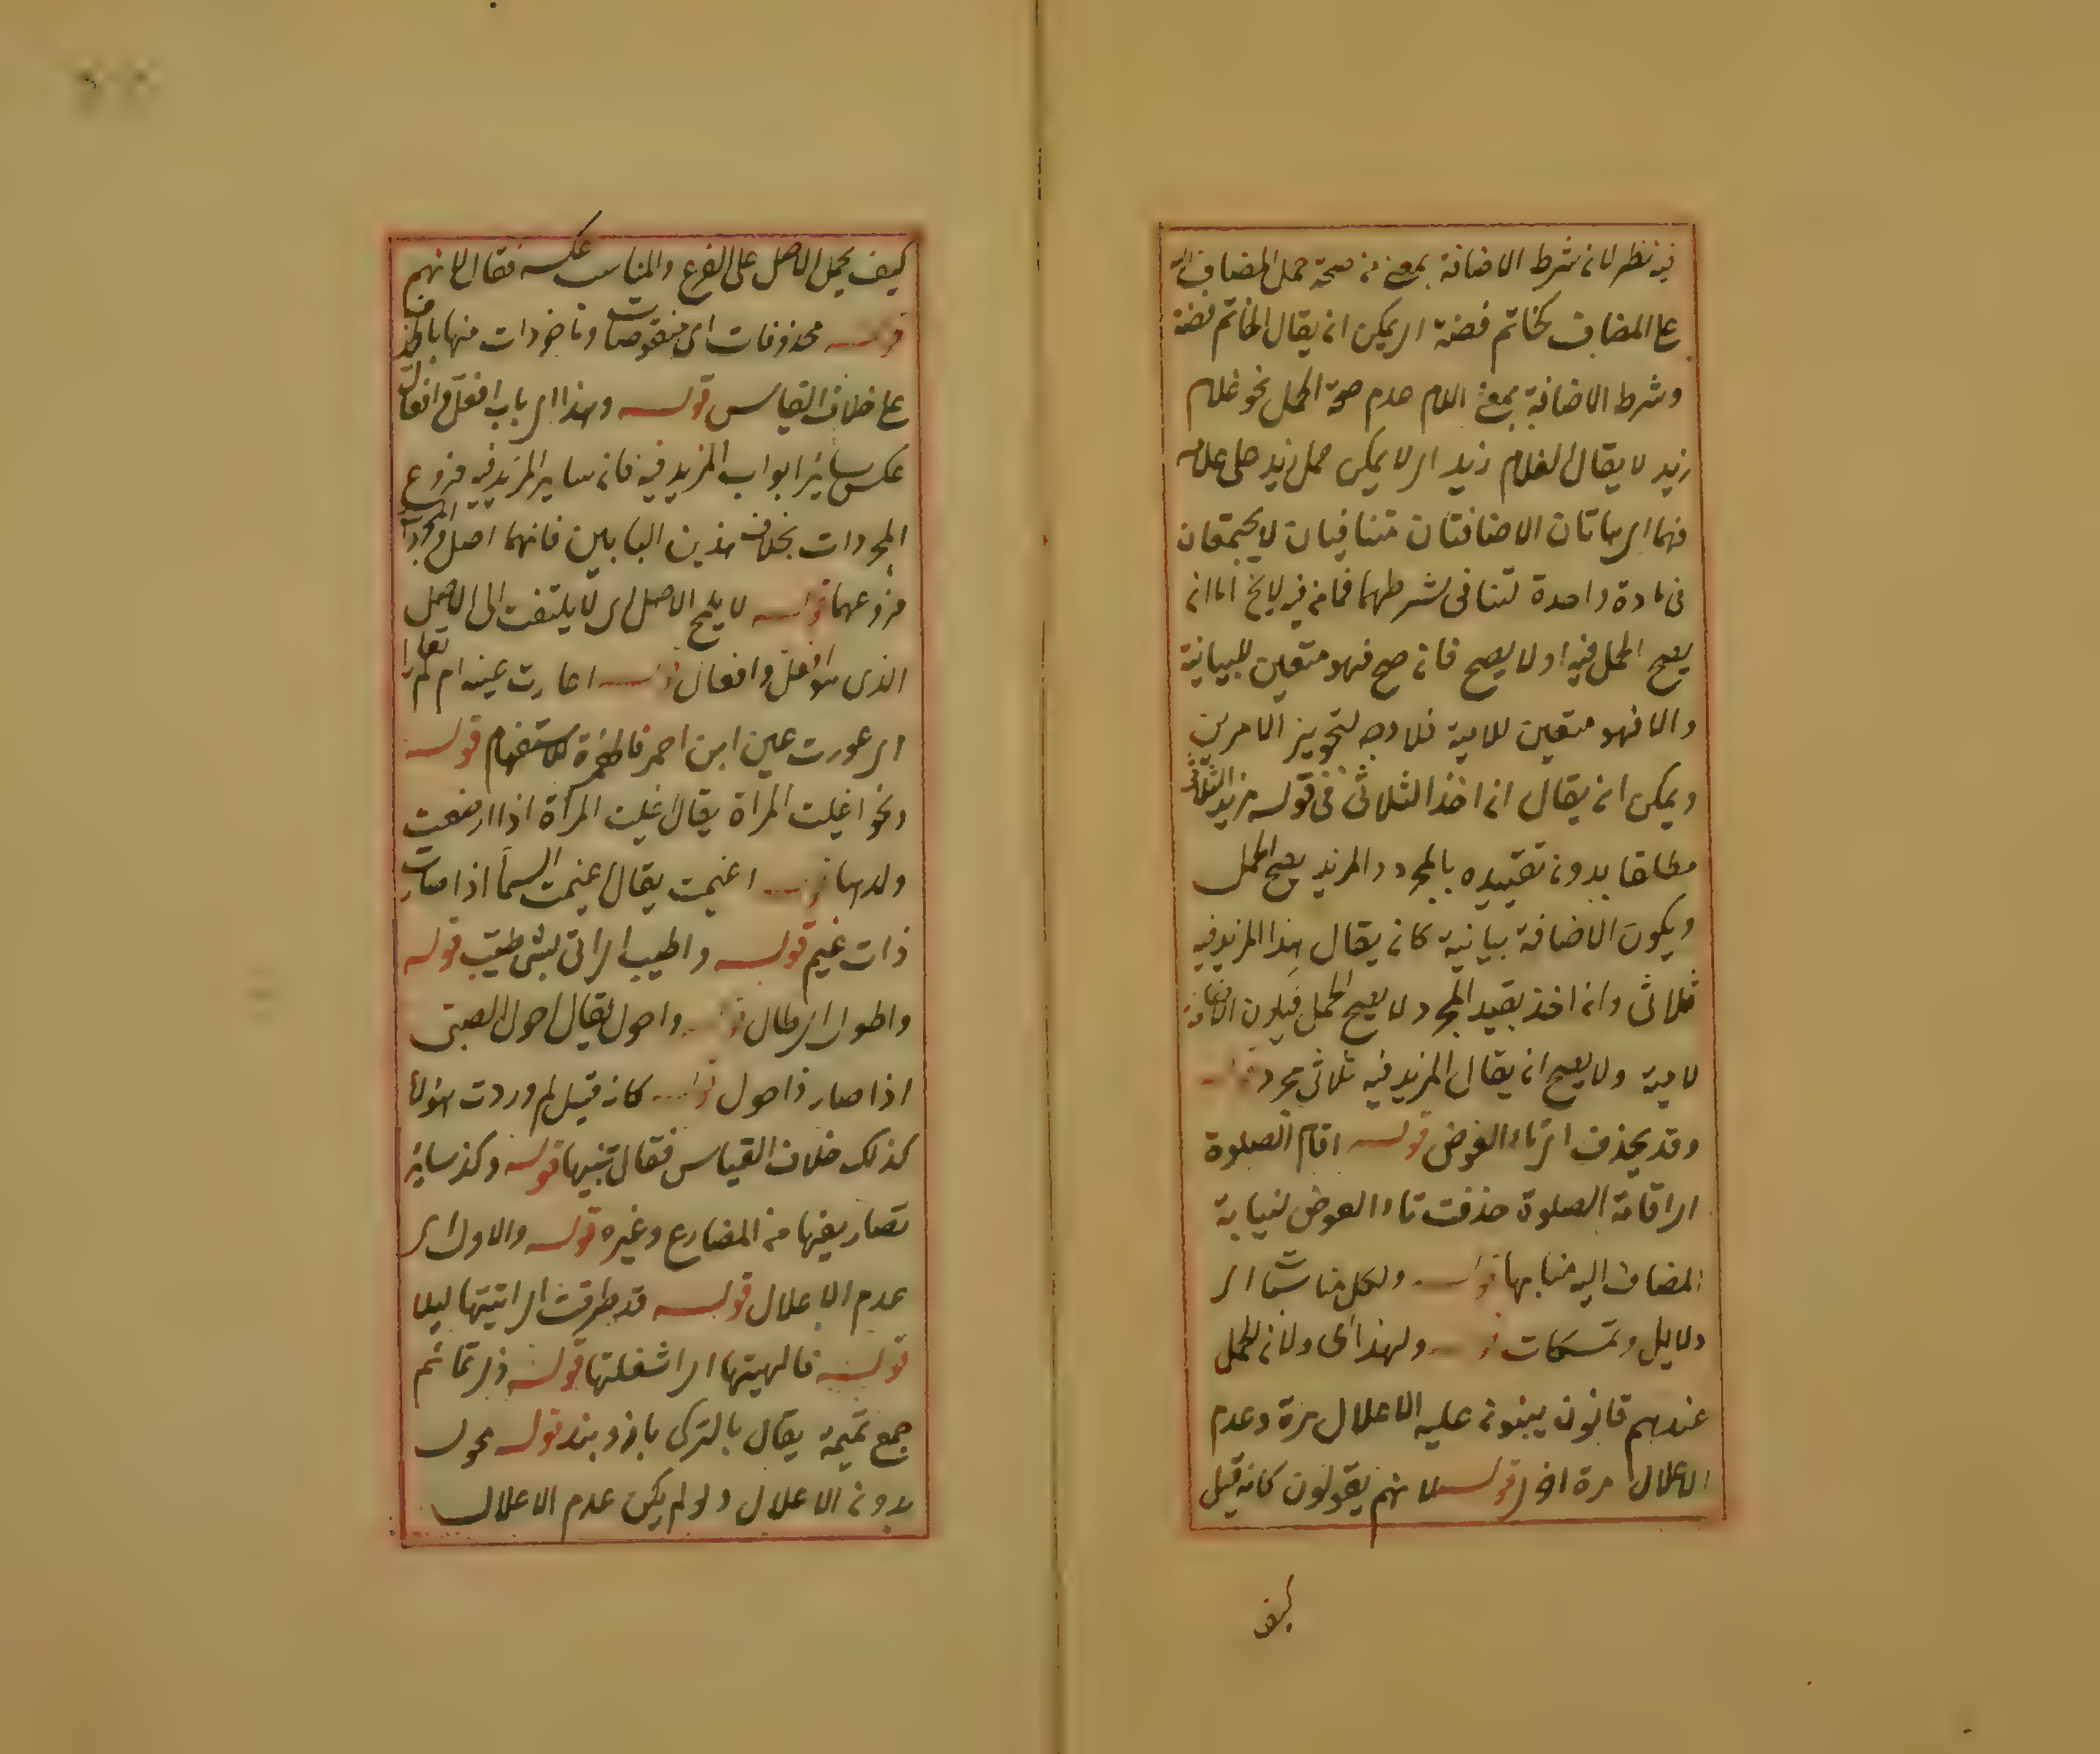 فيه نظر لان شرط الاضافة بمعنى من صحة حمل المضاف اليه
على المضاف كخاتم فضة اى يمكن ان يقال الخاتم فضة
وشرط الاضافة بمعنى اللام عدم صحة الحمل نحو غلام
زيد لا يقال الغلام زيد اى لا يمكن حمل زيد على غلام
فهما اى هاتان الاضافتان متنافيان لا يجتمعان
فى مادة واحدة لتنافى شرطهما فما نحن فيه لا يخ اما ان
يصح الحمل فيه او لا يصح فان صح فهو متعين للبيانية
والا فهو متعين للامية فلا وجه لتجويز الامرين
ويمكن ان يقال ان اخذ الثلاثى فى قوله مزيد الثلاثى
مطلقا بدون تقييده بالمجرد والمزيد يصح الحمل
ويكون الاضافة بيانية كان يقال هذا المزيد فيه
ثلاثى وان اخذ بقيد المجرد لا يصح الحمل فيكون الاضافة
لامية ولا يصح ان يقال المزيد فيه ثلاثى مجرد قوله
وقد يحذف اى تاء العوض قوله اقام الصلوة
اى اقامة الصلوة حذفت تاء العوض لنيابة
المضاف اليه منابها قوله ولكل مناسبات اى
دلايل وتمسكات قوله ولهذا اى ولان للحمل
عندهم قانون يبنون عليه الاعلال مرة وعدم
الاعلال مرة اخرى قوله لانهم يقولون كانه قيل
كيف
كيف يحمل الاصل على الفرع والمناسب عكسه فقال لانهم
قوله محذوفات اى منقوصات وماخوذات منها بالحذف
على خلاف القياس قوله وهذا اى باب افعل وافعال
عكس سائر ابواب المزيد فيه فان ساير المزيد فيه فروع
المجردات بخلاف هذين البابين فانهما اصل والمجردات
فروعهما قوله لا يلمح الاصل اى لا يلتفت الى الاصل
الذى هو افعل وافعال قوله اعارت عينه ام لم تعارا
اى عورت عين ابن احمر فالهمزة للاستفهام قوله
ونحو اغيلت المراة يقال اغيلت المراة اذا ارضعت
ولدها قوله اغيمت يقال اغيمت السماء اذا صارت
ذات غيم قوله واطيب اى اتى بشئ طيب قوله
واطول اى طال قوله واحول يقال احول الصبى
اذا صار ذا حول قوله كانه قيل لم وردت هؤلاء
كذلك خلاف القياس فقال تنبيها قوله وكذا سائر
تصاريفها من المضارع وغيره قوله والاول اى
عدم الاعلال قوله قد طرقت اى اتيتها ليلا
قوله فالهيتها اى اشغلتها قوله ذى تمائم
جمع تميمة يقال بالتركى بازوبند قوله محول
بدون الاعلال ولو لم يكن عدم الاعلال